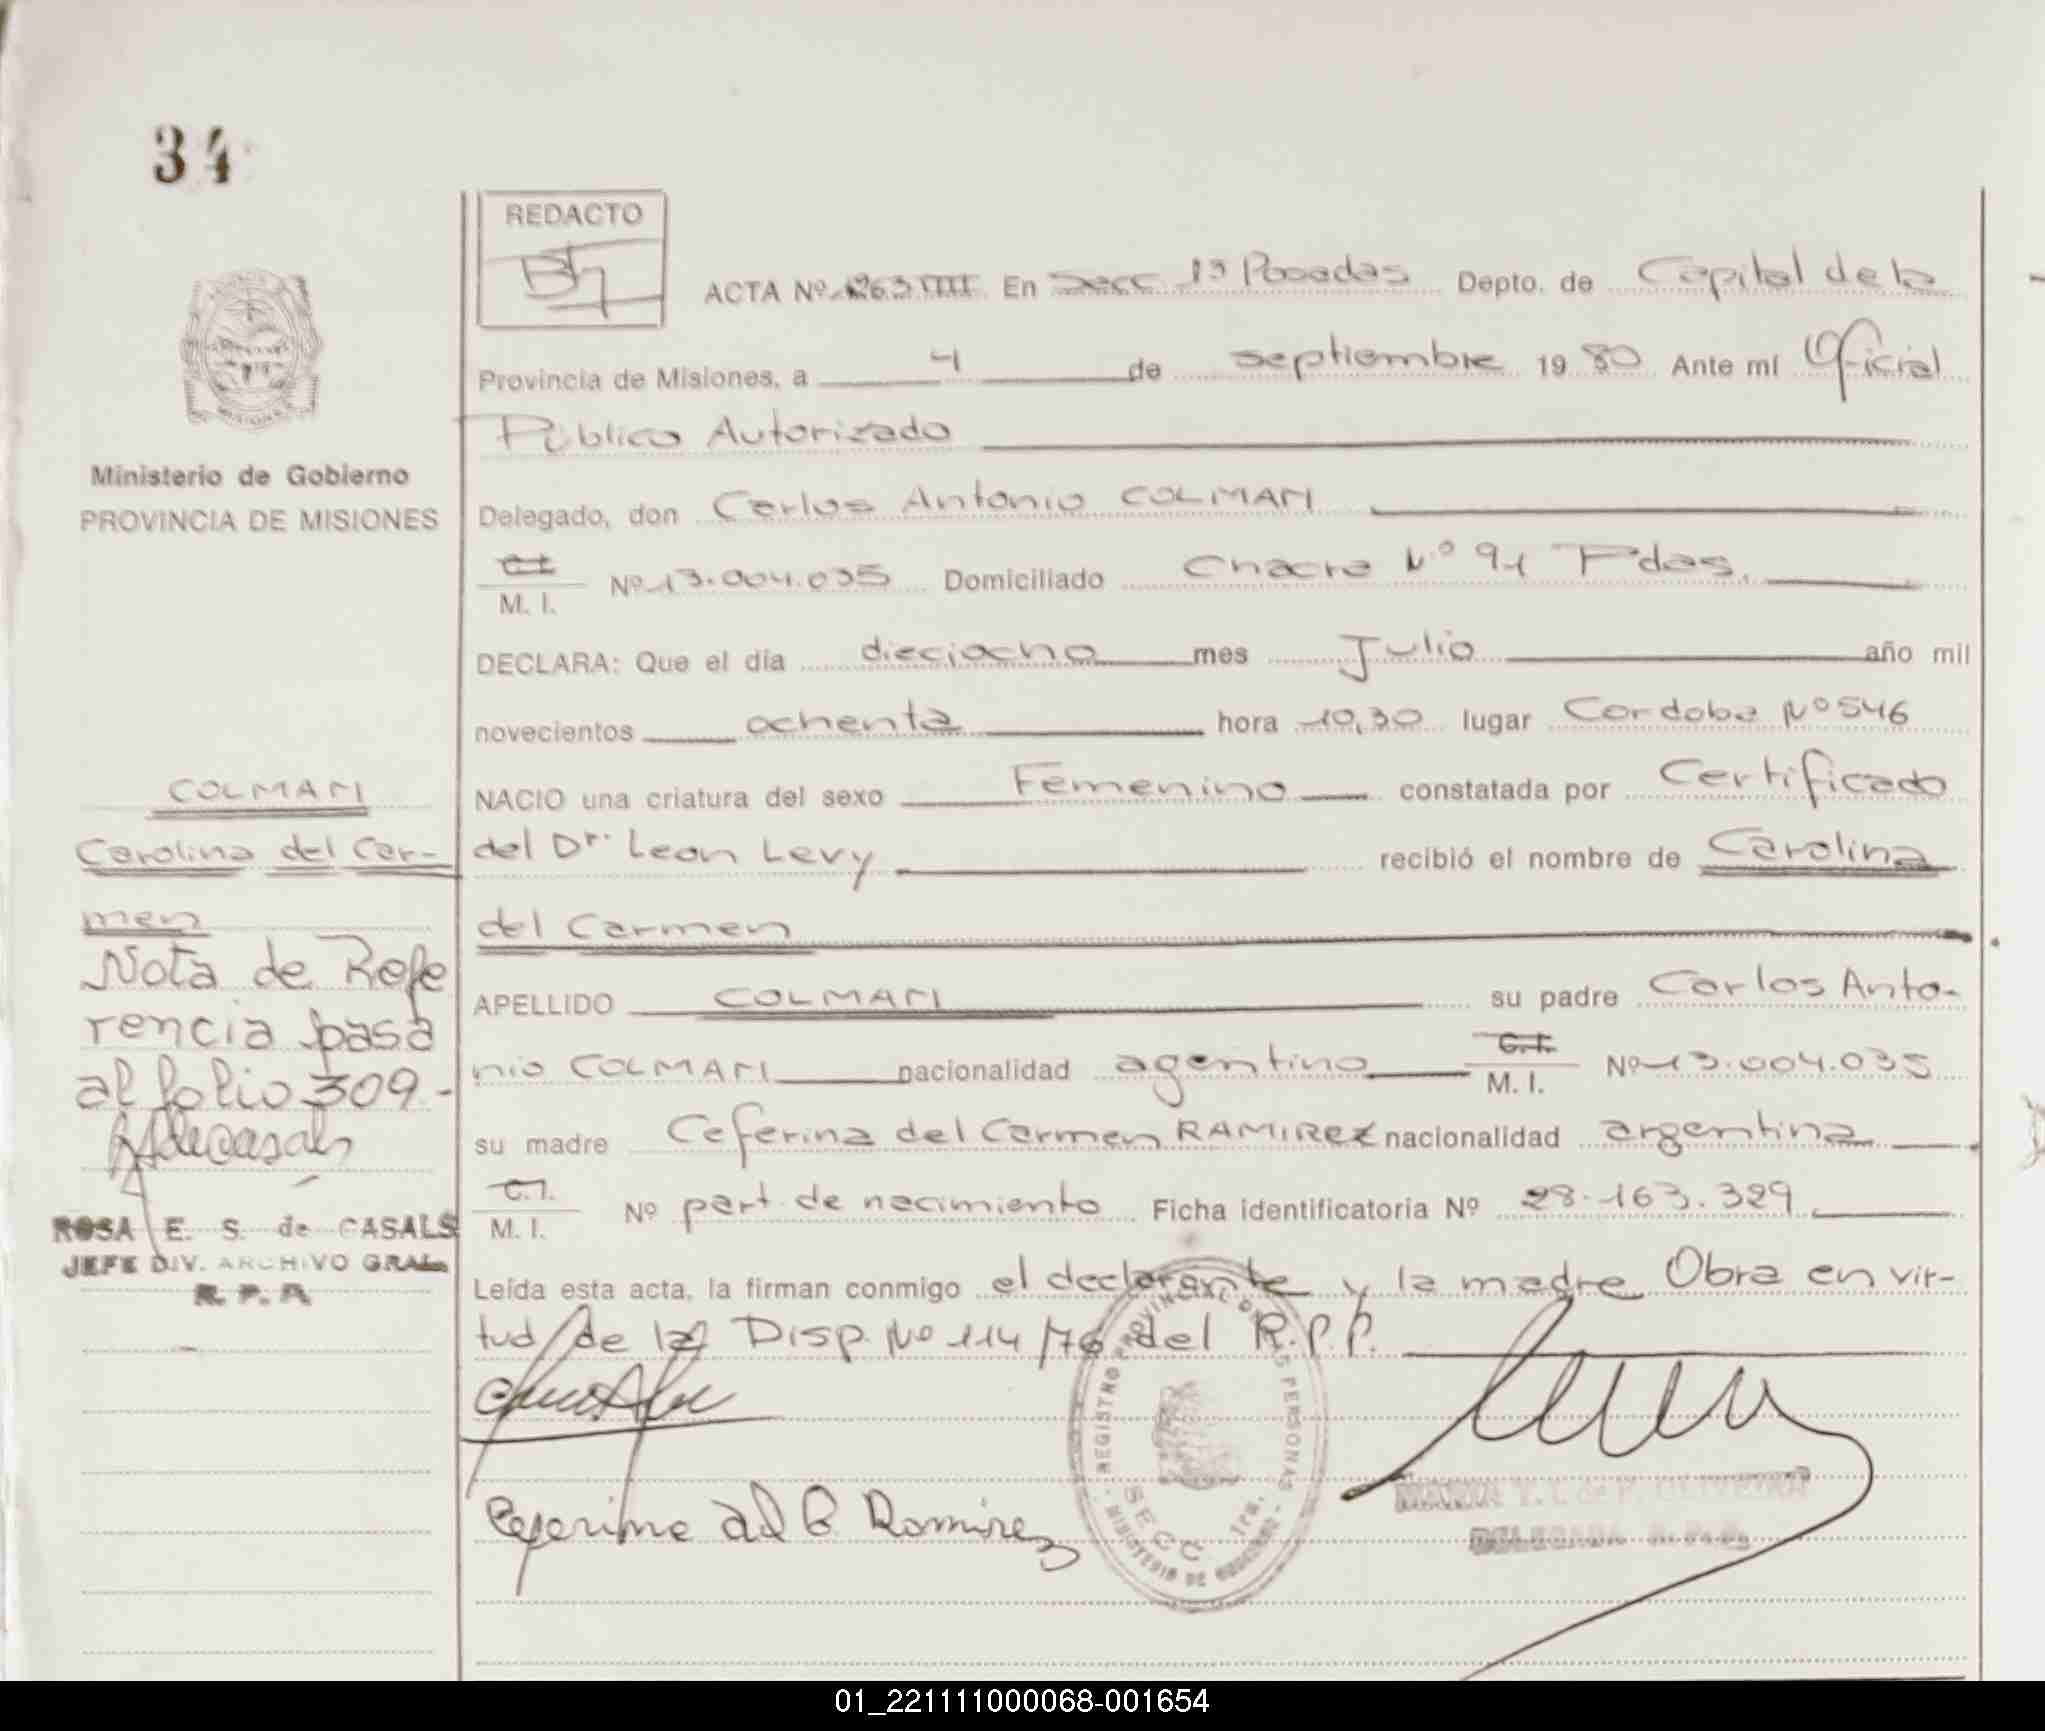 34
REDACTO
ACTA Nº 1263 IIII En Secc 1ª Posadas Depto. de Capital de la
Provincia de Misiones, a 4 de septiembre 19 80 Ante mí Oficial
Público Autorizado
Delegado, don Carlos Antonio COLMAN
C.I. Nº 13.004.035 Domiciliado Chacra Nº 91 Pdas.
M. I.
DECLARA: Que el día dieciocho mes Julio año mil
novecientos ochenta hora 10,30 lugar Cordoba Nº 546
NACIO una criatura del sexo Femenino constatada por Certificado
del Dr. Leon Levy recibió el nombre de Carolina
del Carmen
APELLIDO COLMAN su padre Carlos Anto-
nio COLMAN nacionalidad agentino C.I. Nº 13.004.035
M. I.
su madre Ceferina del Carmen RAMIREZ nacionalidad argentina
C.I. Nº part. de nacimiento Ficha identificatoria Nº 28.163.329
M. I.
Leída esta acta, la firman conmigo el declarante y la madre Obra en vir-
tud de la Disp. Nº 114/76 del R.P.P.
Ceferina del C Ramirez
REGISTRO PROVINCIAL DE LAS PERSONAS
SECC. 1ra.
MINISTERIO DE GOBIERNO
DELEGADA R. P. P.
MISIONES
Ministerio de Gobierno
PROVINCIA DE MISIONES
COLMAN
Carolina del Car-
men
Nota de Refe
rencia pasa
al folio 309.-
ROSA E. S. de CASALS
JEFE DIV. ARCHIVO GRAL.
R. P. P.
01_221111000068-001654